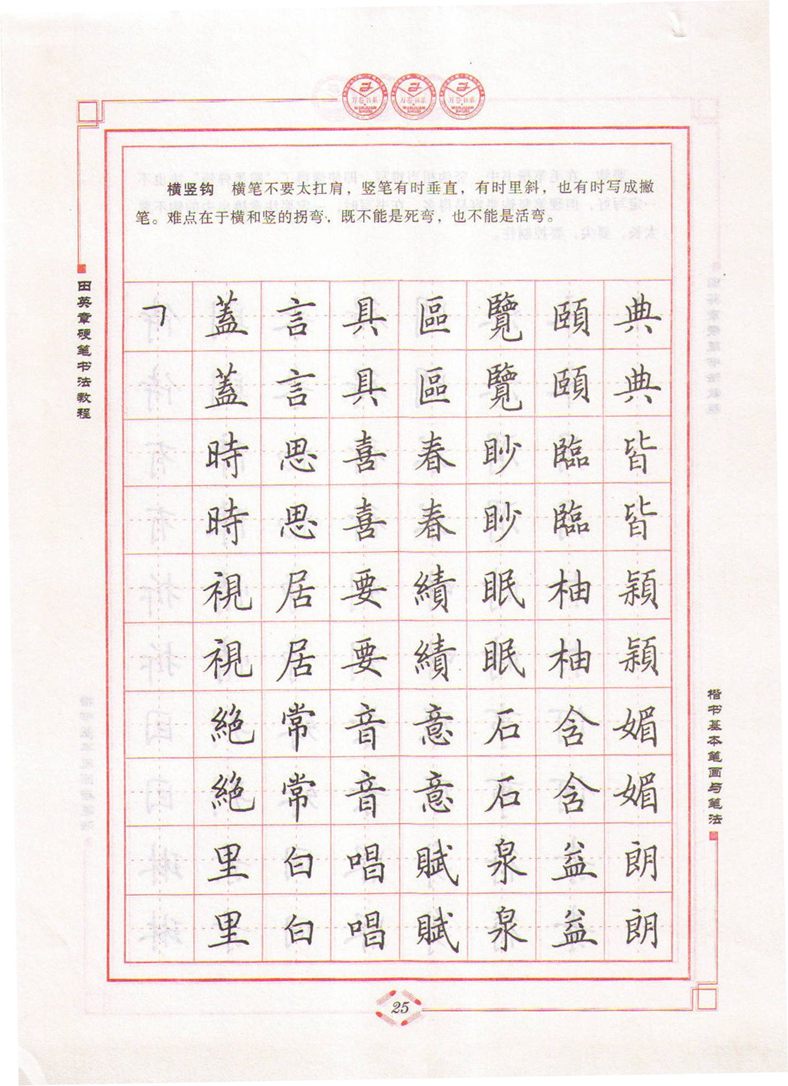 横竖钩 横笔不要太扛肩，竖笔有时垂直，有时里斜，也有时写成撇
笔。难点在于横和竖的拐弯，既不能是死弯，也不能是活弯。
田英章硬笔书法教程
㇆ 蓋 言 具 區 覽 頤 典
蓋 言 具 區 覽 頤 典
時 思 喜 春 眇 臨 皆
時 思 喜 春 眇 臨 皆
視 居 要 績 眠 柚 穎
視 居 要 績 眠 柚 穎
絕 常 音 意 石 含 媚
絕 常 音 意 石 含 媚
里 白 唱 賦 泉 益 朗
里 白 唱 賦 泉 益 朗
楷书基本笔画与笔法
25